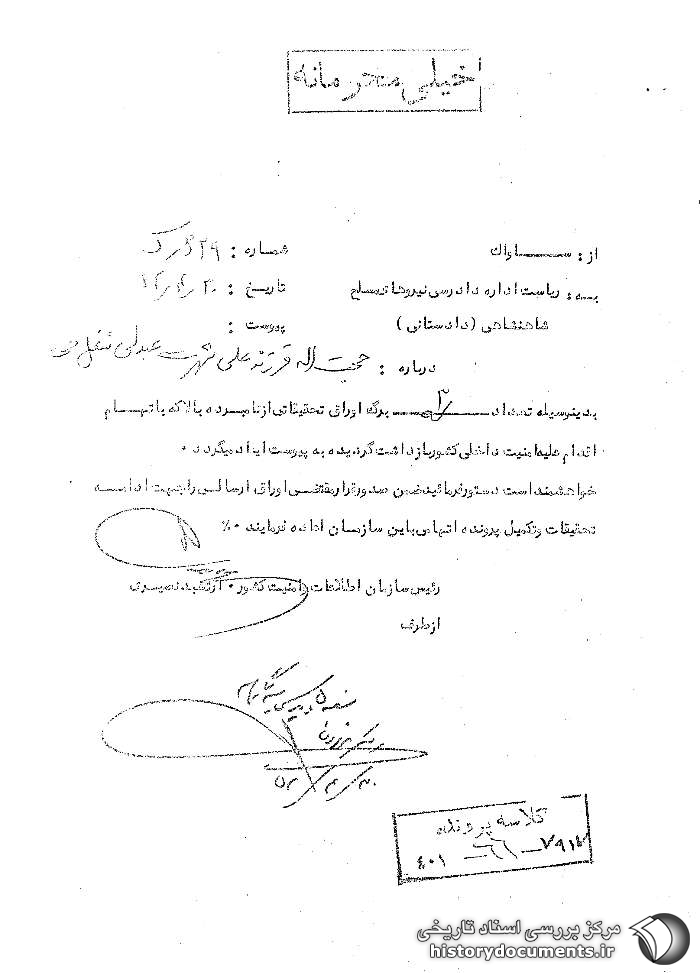 خیلی محرمانه
از : ســــاواک
شماره :
به : ریاست اداره دادرسی نیروهای مسلح
تاریخ :
شاهنشاهی (دادستانی)
پیوست :
درباره : حجت اله فرزند علی شهرت عبدلی
بدینوسیله تعداد ۳ برگ اوراق تحقیقاتی از نامبرده بالا که باتهام
اقدام علیه امنیت داخلی کشور بازداشت گردیده به پیوست ایفاد میگردد ۰
خواهشمند است دستور فرمائید ضمن صدور قرار مقتضی اوراق ارسالی را جهت ادامه
تحقیقات و تکمیل پرونده اتهامی باین سازمان اعاده فرمایند ۰٪
رئیس سازمان اطلاعات و امنیت کشور ۰ ارتشبد نصیری
از طرف
کلاسه پرونده
۷۹۱۷ — ۶۶ — ۴۰۱
مرکز بررسی اسناد تاریخی
historydocuments.ir